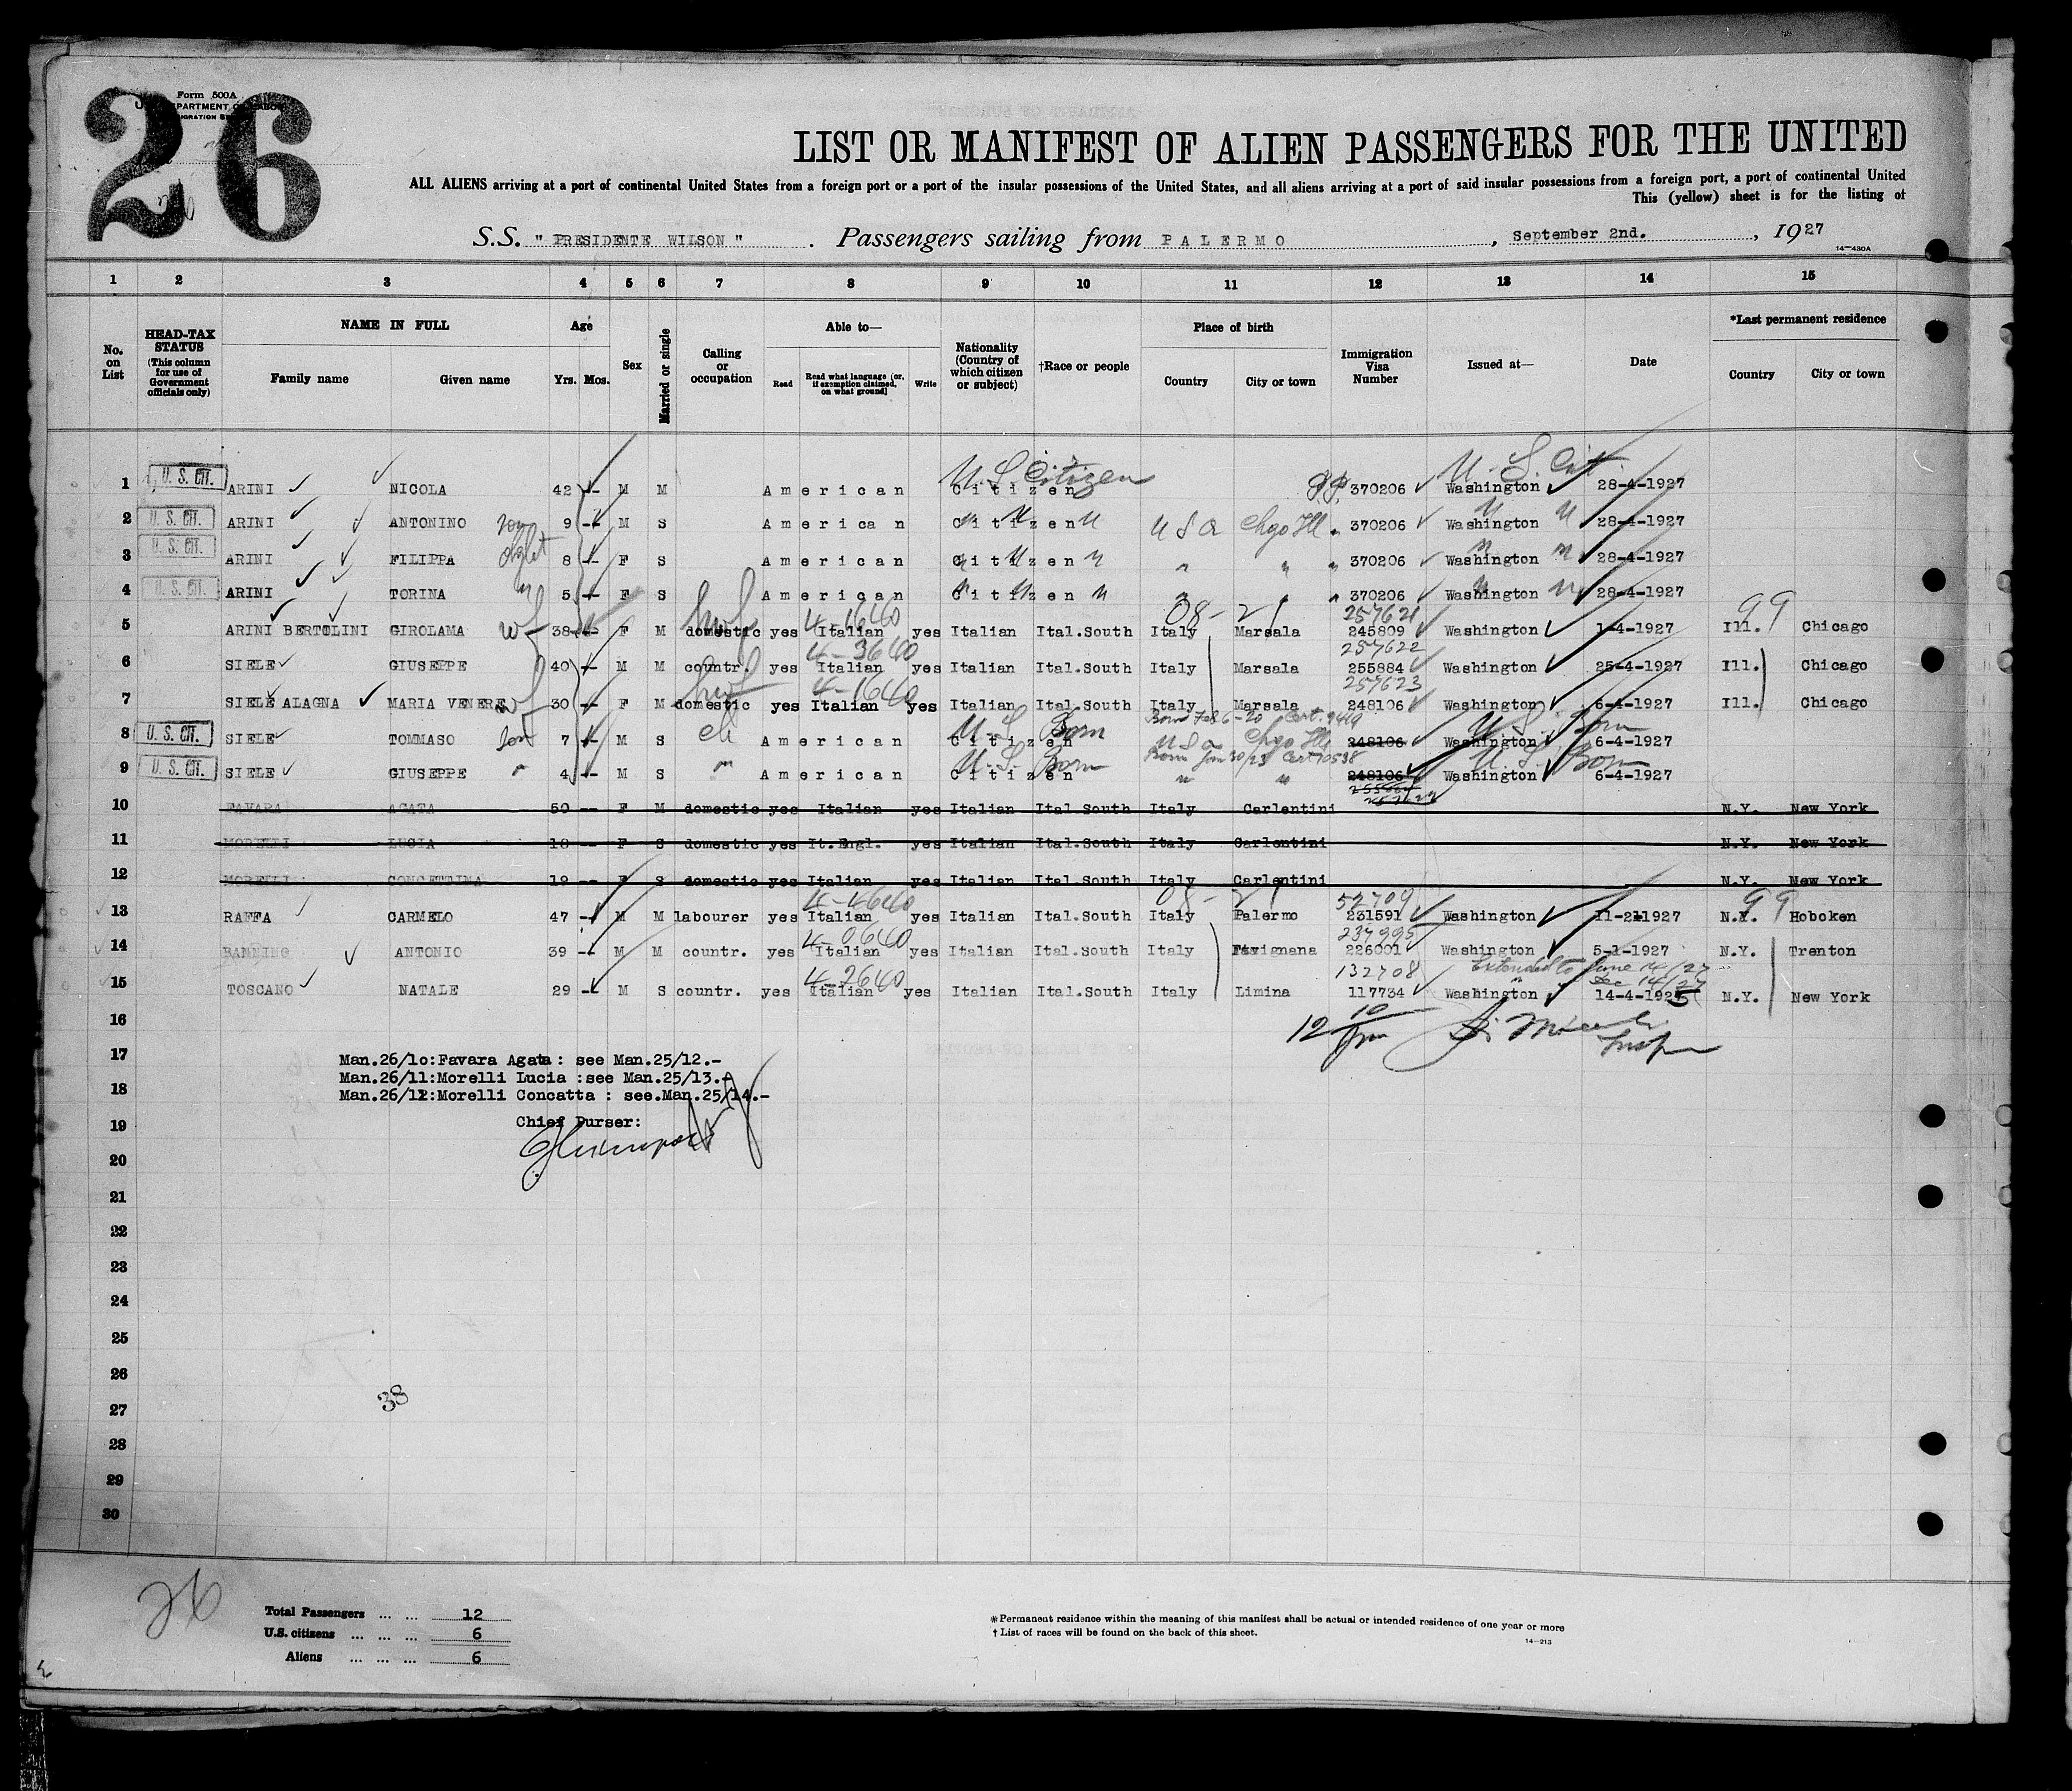 26
Form 500A
LIST OR MANIFEST OF ALIEN PASSENGERS FOR THE UNITED
ALL ALIENS arriving at a port of continental United States from a foreign port or a port of the insular possessions of the United States, and all aliens arriving at a port of said insular possessions from a foreign port, a port of continental United
This (yellow) sheet is for the listing of
S.S. " PRESIDENTE WILSON " . Passengers sailing from PALERMO , September 2nd. , 1927
14—430A
1 2 3 4 5 6 7 8 9 10 11 12 13 14 15
No. on List
HEAD-TAX STATUS (This column for use of Government officials only)
NAME IN FULL Family name Given name
Age Yrs. Mos.
Sex
Married or single
Calling or occupation
Able to— Read Read what language (or, if exemption claimed, on what ground) Write
Nationality (Country of which citizen or subject)
†Race or people
Place of birth Country City or town
Immigration Visa Number
Issued at—
Date
*Last permanent residence Country City or town
U. S. Citizen U. S. Cit.
1 U. S. CIT. ARINI NICOLA 42 -- M M American Citizen 370206 Washington 28-4-1927
2 U. S. CIT. ARINI ANTONINO son 9 -- M S American Citizen USA Chgo Ill 370206 Washington 28-4-1927
3 U. S. CIT. ARINI FILIPPA 8 -- F S American Citizen " " 370206 Washington 28-4-1927
4 U. S. CIT. ARINI TORINA " 5 -- F S American Citizen " " 370206 Washington 28-4-1927
hwf 4-1640 08-21 257621 99
5 ARINI BERTOLINI GIROLAMA wf 38 -- F M domestic yes Italian yes Italian Ital.South Italy Marsala 245809 Washington 1-4-1927 Ill. Chicago
4-3640 257622
6 SIELE GIUSEPPE 40 -- M M countr. yes Italian yes Italian Ital.South Italy Marsala 255884 Washington 25-4-1927 Ill. Chicago
hwf 4-1640 257623
7 SIELE ALAGNA MARIA VENERE wf 30 -- F M domestic yes Italian yes Italian Ital.South Italy Marsala 248106 Washington 6-4-1927 Ill. Chicago
U. S. Born U. S. Born
8 U. S. CIT. SIELE TOMMASO son 7 -- M S ch American Citizen USA Chgo Ill 248106 Washington 6-4-1927
U. S. Born Born Jan 30/23 Cert 10538 U. S. Born
9 U. S. CIT. SIELE GIUSEPPE " 4 -- M S " American Citizen " " 248106 Washington 6-4-1927
10 FAVARA AGATA 50 -- F M domestic yes Italian yes Italian Ital.South Italy Carlentini N.Y. New York
11 MORELLI LUCIA 18 -- F S domestic yes It.Engl. yes Italian Ital.South Italy Carlentini N.Y. New York
12 MORELLI CONCETTINA 19 -- F S domestic yes Italian yes Italian Ital.South Italy Carlentini N.Y. New York
4-4640 08-21 52709 99
13 RAFFA CARMELO 47 -- M M labourer yes Italian yes Italian Ital.South Italy Palermo 231591 Washington 11-2-1927 N.Y. Hoboken
4-0640 237995
14 BANNINO ANTONIO 39 -- M M countr. yes Italian yes Italian Ital.South Italy Favignana 226001 Washington 5-1-1927 N.Y. Trenton
4-2640 132708 Extended to June 14/27
" Dec 14/27
15 TOSCANO NATALE 29 -- M S countr. yes Italian yes Italian Ital.South Italy Limina 117734 Washington 14-4-1925 N.Y. New York
16
12 10 pm
17 Man.26/10:Favara Agata : see Man.25/12.-
Man.26/11:Morelli Lucia :see Man.25/13.-
18 Man.26/12:Morelli Concatta : see.Man.25/14.-
19 Chief Purser:
20
21
22
23
24
25
26
38
27
28
29
30
26
Total Passengers ... ... 12
U.S. citizens ... ... ... 6
Aliens ... ... ... 6
*Permanent residence within the meaning of this manifest shall be actual or intended residence of one year or more
† List of races will be found on the back of this sheet.
14—213